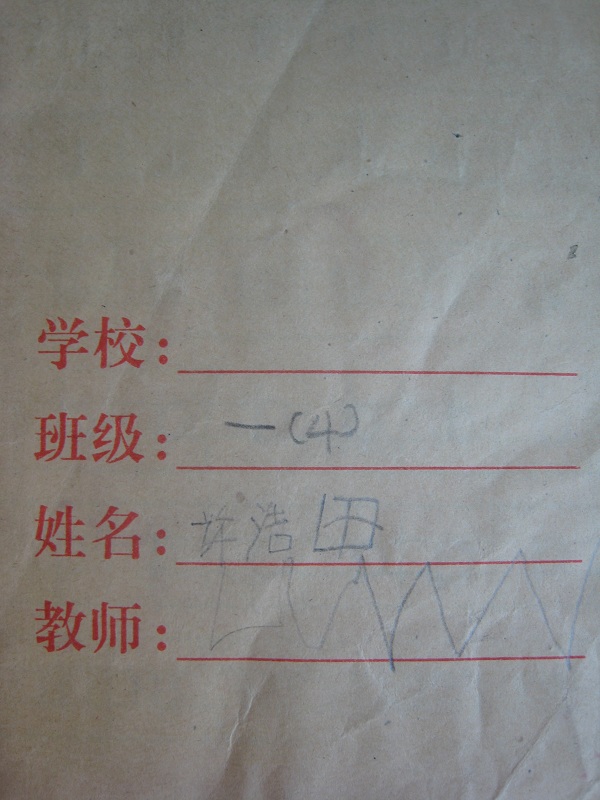 学校:
班级: 一(4)
姓名: 许浩田
教师: